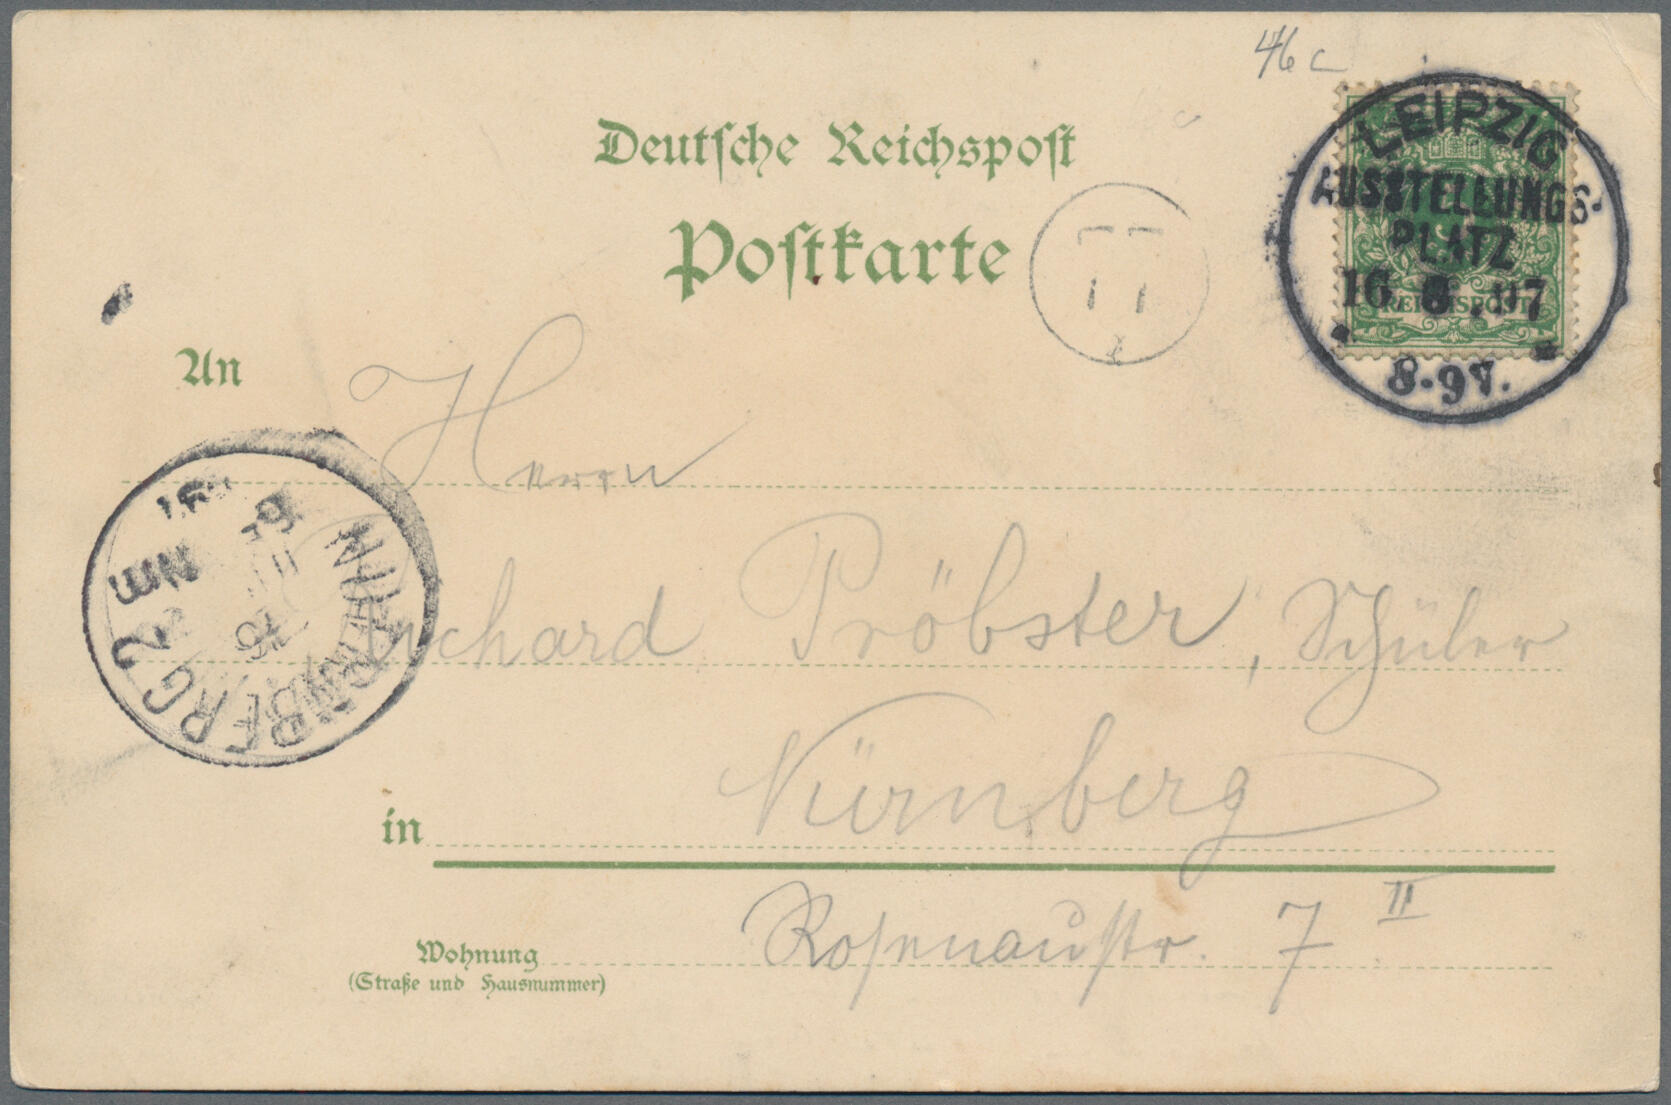 46 c
Deutsche Reichspost
Postkarte
LEIPZIG
AUSSTELLUNGS-
PLATZ
REICHSPOST
8-9V.
An
Herrn
Richard Pröbster, Schüler
NUERNBERG 2
in Nürnberg
Wohnung Rosenaustr. 7 II
(Straße und Hausnummer)